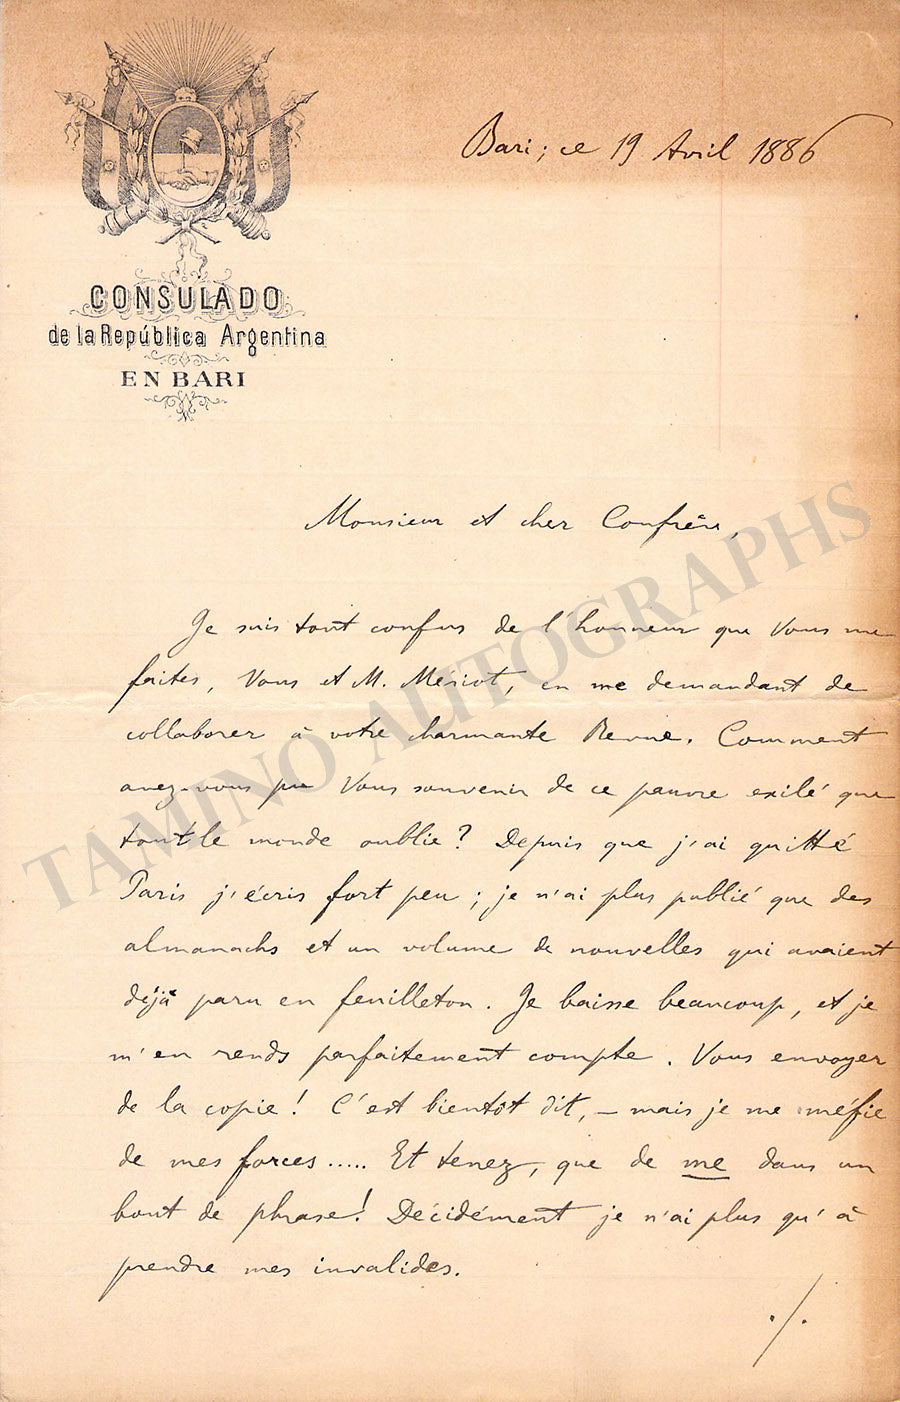 Bari; ce 19 Avril 1886
CONSULADO
de la República Argentina
EN BARI
Monsieur et cher Confrère,
Je suis tout confus de l'honneur que Vous me
faites, Vous et M. Mériot, en me demandant de
collaborer à votre charmante Revue. Comment
avez-vous pu Vous souvenir de ce pauvre exilé que
tout le monde oublie? Depuis que j'ai quitté
Paris j'écris fort peu; je n'ai plus publié que des
almanachs et un volume de nouvelles qui avaient
déjà paru en feuilleton. Je baisse beaucoup, et je
m'en rends parfaitement compte. Vous envoyer
de la copie! C'est bientôt dit, – mais je me méfie
de mes forces..... Et tenez, que de me dans un
bout de phrase! Décidément je n'ai plus qu'à
prendre mes invalides.
./.
TAMINO AUTOGRAPHS